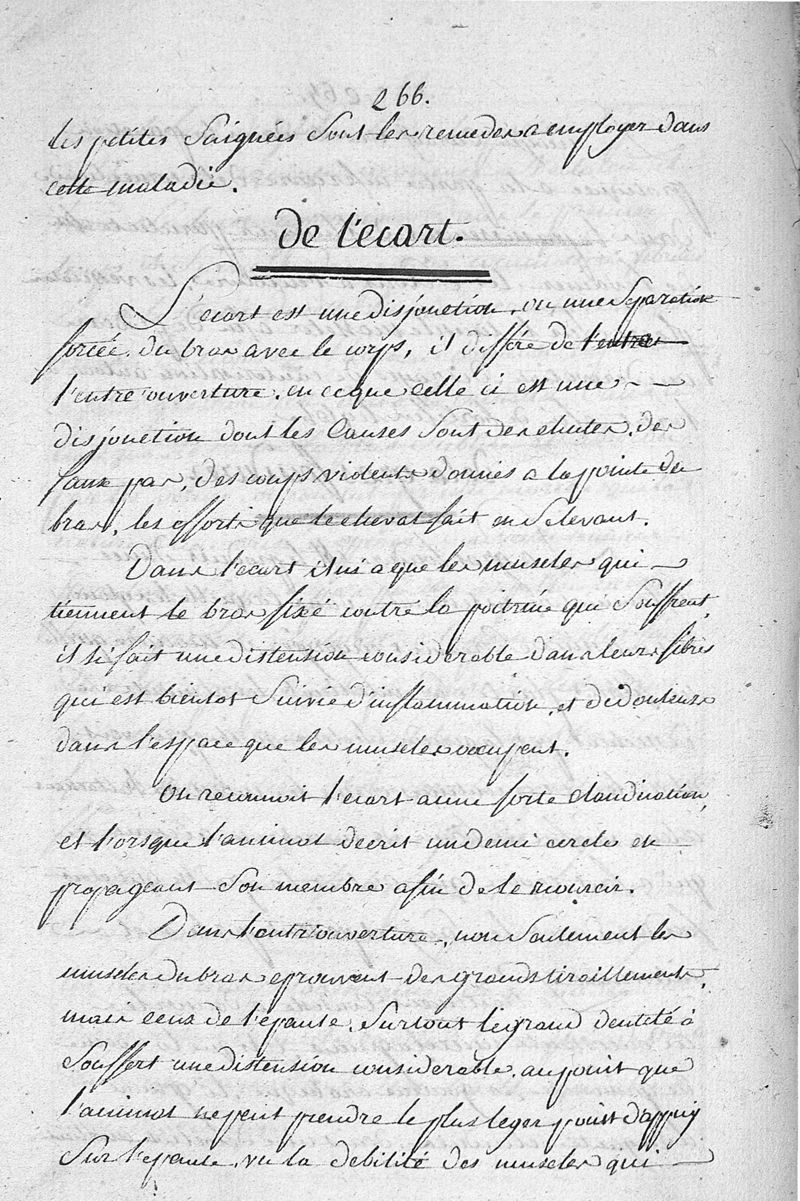 266.
les petites Saignées Sont les remedes a employer dans
cette maladie.
de l'ecart.
L'ecart est une disjonction, ou une Separation
forcée du bras avec le corps, il differe de l'entre
l'entre'ouverture. en ce que celle ci est une
disjonction dont les Causes Sont des chutes, des
faux pas, des coups violents donnés a la pointe du
bras, les efforts que le cheval fait en Se levant.
Dans l'ecart il n'i a que les muscles qui
tiennent le bras fixé contre la poitrine qui Souffrent,
il s'i fait une distension considerable dans leurs fibres
qui est bientot Suivie d'inflammation, et de douleurs
dans l'espace que les muscles occupent.
On reconnoit l'ecart a une forte Claudication,
et l'orsque l'animal decrit un demi cercle en
propageant Son membre afin de le mouvoir.
Dans l'entr'ouverture, non Seulement les
muscles du bras eprouvent des grands tiraillements,
mais ceux de l'épaule, Surtout le grand dentelé à
Souffert une distension considerable, au point que
l'animal ne peut prendre le plus leger point d'appuy
Sur l'epaule, vu la debilité des muscles qui